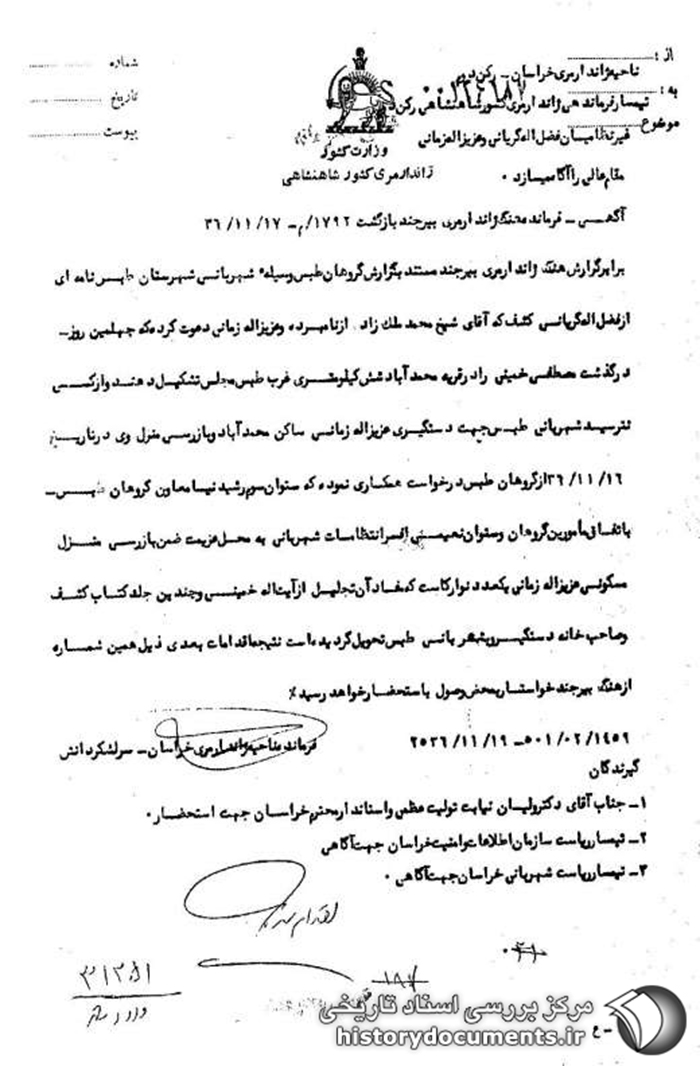 از :
ناحیه ژاندارمری خراسان - رکن دوم
به :
تیمسار فرماندهی ژاندارمری کشور شاهنشاهی رکن ۲
موضوع
غیرنظامیان فضل اله گریانی و عزیزاله زمانی
شماره
تاریخ
پیوست
وزارت کشور
ژاندارمری کشور شاهنشاهی
مقام عالی را آگاه میسازد ۰
آگهی - فرمانده هنگ ژاندارمری بیرجند بازگشت ۱۷۹۲/م - ۳۶/۱۱/۱۷
برابر گزارش هنگ ژاندارمری بیرجند مستند بگزارش گروهان طبس وسیله شهربانی شهرستان طبس نامه ای
از فضل اله گریانی کشف که آقای شیخ محمد ملک زاد از نامبرده و عزیزاله زمانی دعوت کرده که چهلمین روز -
درگذشت مصطفی خمینی را در قریه محمد آباد شش کیلومتری غرب طبس مجلس تشکیل دهند و از کسی
نترسید شهربانی طبس جهت دستگیری عزیزاله زمانی ساکن محمد آباد و بازرسی منزل وی در تاریخ
۳۶/۱۱/۱۶ از گروهان طبس درخواست همکاری نموده که ستوان سوم رشید نیا معاون گروهان طبس -
باتفاق مأمورین گروهان و ستوان نعیمی افسر انتظامات شهربانی به محل عزیمت ضمن بازرسی منزل
مسکونی عزیزاله زمانی یکعدد نوار کاست که مفاد آن تجلیل از آیت اله خمینی و چندین جلد کتاب کشف
و صاحب خانه دستگیر و بشهربانی طبس تحویل گردیده است نتیجه اقدامات بعدی ذیل همین شماره
از هنگ بیرجند خواستار بمحض وصول باستحضار خواهد رسید ٪
فرمانده ناحیه ژاندارمری خراسان - سرلشکر دانش
۵۰۱/۰۲/۱۴۵۹ - ۲۵۳۶/۱۱/۱۹
گیرندگان
۱- جناب آقای دکتر ولیان نیابت تولیت عظمی و استاندار محترم خراسان جهت استحضار ۰
۲- تیمسار ریاست سازمان اطلاعات و امنیت خراسان جهت آگاهی
۳- تیمسار ریاست شهربانی خراسان جهت آگاهی ۰
مرکز بررسی اسناد تاریخی
historydocuments.ir